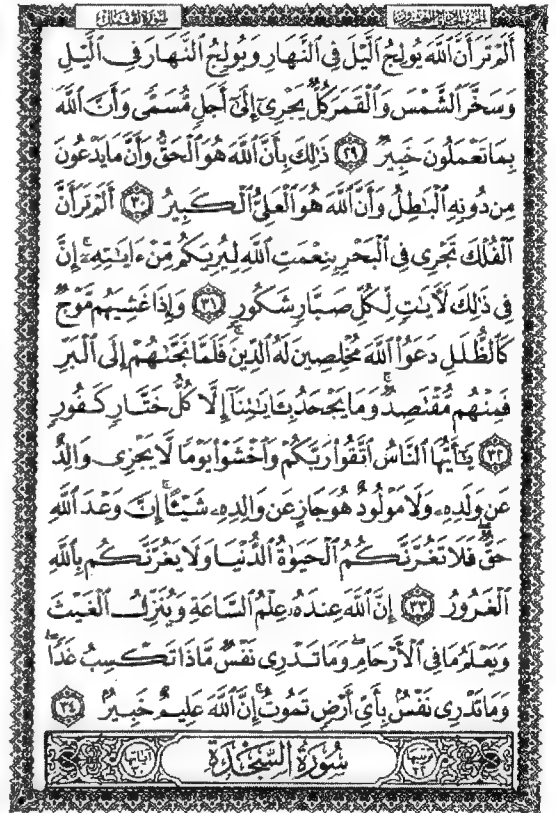 سورة لقمان
الجزء الحادي والعشرون
أَلَمْ تَرَ أَنَّ ٱللَّهَ يُولِجُ ٱلَّيْلَ فِى ٱلنَّهَارِ وَيُولِجُ ٱلنَّهَارَ فِى ٱلَّيْلِ
وَسَخَّرَ ٱلشَّمْسَ وَٱلْقَمَرَ كُلٌّ يَجْرِىٓ إِلَىٰٓ أَجَلٍ مُّسَمًّى وَأَنَّ ٱللَّهَ
بِمَا تَعْمَلُونَ خَبِيرٌ ٢٩ ذَٰلِكَ بِأَنَّ ٱللَّهَ هُوَ ٱلْحَقُّ وَأَنَّ مَا يَدْعُونَ
مِن دُونِهِ ٱلْبَٰطِلُ وَأَنَّ ٱللَّهَ هُوَ ٱلْعَلِىُّ ٱلْكَبِيرُ ٣٠ أَلَمْ تَرَ أَنَّ
ٱلْفُلْكَ تَجْرِى فِى ٱلْبَحْرِ بِنِعْمَتِ ٱللَّهِ لِيُرِيَكُم مِّنْ ءَايَٰتِهِۦٓ ۚ إِنَّ
فِى ذَٰلِكَ لَءَايَٰتٍ لِّكُلِّ صَبَّارٍ شَكُورٍ ٣١ وَإِذَا غَشِيَهُم مَّوْجٌ
كَٱلظُّلَلِ دَعَوُا۟ ٱللَّهَ مُخْلِصِينَ لَهُ ٱلدِّينَ فَلَمَّا نَجَّىٰهُمْ إِلَى ٱلْبَرِّ
فَمِنْهُم مُّقْتَصِدٌ ۚ وَمَا يَجْحَدُ بِـَٔايَٰتِنَآ إِلَّا كُلُّ خَتَّارٍ كَفُورٍ
٣٢ يَٰٓأَيُّهَا ٱلنَّاسُ ٱتَّقُوا۟ رَبَّكُمْ وَٱخْشَوْا۟ يَوْمًا لَّا يَجْزِى وَالِدٌ
عَن وَلَدِهِۦ وَلَا مَوْلُودٌ هُوَ جَازٍ عَن وَالِدِهِۦ شَيْـًٔا ۚ إِنَّ وَعْدَ ٱللَّهِ
حَقٌّ ۖ فَلَا تَغُرَّنَّكُمُ ٱلْحَيَوٰةُ ٱلدُّنْيَا وَلَا يَغُرَّنَّكُم بِٱللَّهِ
ٱلْغَرُورُ ٣٣ إِنَّ ٱللَّهَ عِندَهُۥ عِلْمُ ٱلسَّاعَةِ وَيُنَزِّلُ ٱلْغَيْثَ
وَيَعْلَمُ مَا فِى ٱلْأَرْحَامِ ۖ وَمَا تَدْرِى نَفْسٌ مَّاذَا تَكْسِبُ غَدًا ۖ
وَمَا تَدْرِى نَفْسٌۢ بِأَىِّ أَرْضٍ تَمُوتُ ۚ إِنَّ ٱللَّهَ عَلِيمٌ خَبِيرٌۢ ٣٤
سُورَةُ السَّجْدَةِ
آياتها ٣٠